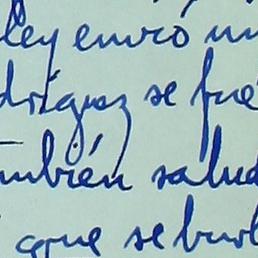 ley envió un
dríguez se fue
mbién salud
que se burl